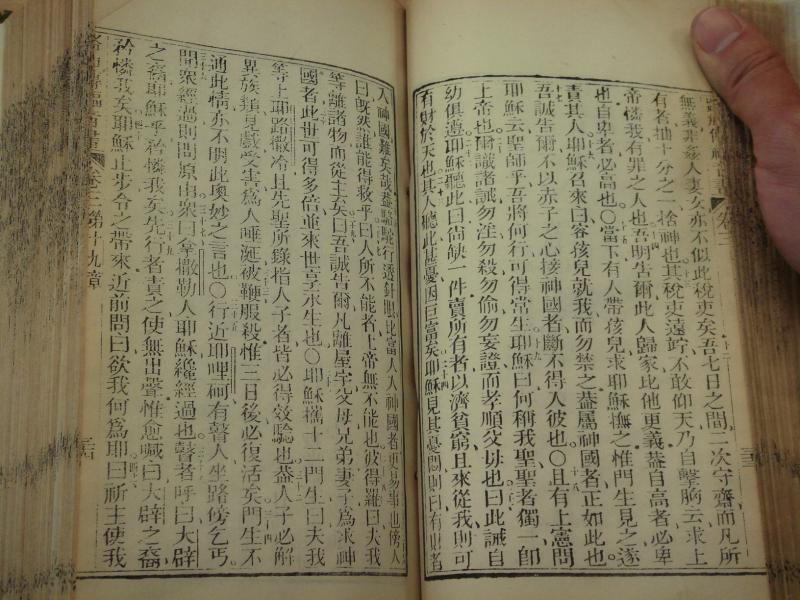 無義非姦人妻女亦不似此稅吏矣吾七日之間二次守齋而凡所
有者抽十分之一捨神也其稅吏遠竚不敢仰天乃自擊胸云求上
帝憐我有罪之人也吾明告爾此人歸家比他更義蓋自高者必卑
也自卑者必高也○當下有人帶孩兒求耶穌撫之惟門生見之遂
責其人耶穌召來曰容孩兒就我而勿禁之蓋屬神國者正如此也
吾誠告爾不以赤子之心接神國者斷不得人彼也○且有上憲問
耶穌云聖師乎吾將何行可得常生耶穌曰何稱我聖聖者獨一卽
上帝也爾識諸誡勿淫勿殺勿偷勿妄證而孝順父母也曰此誡自
幼俱遵耶穌聽此曰尚缺一件賣所有者以濟貧窮且來從我則可
有財於天也其人聽此甚憂因巨富矣耶穌見其憂悶則曰有財者
入神國難矣哉蓋駱駝行透針眼比富人入神國者更易事也傍人
曰旣然誰能得救乎曰人所不能者上帝無不能也彼得羅曰夫我
等離諸物而從主矣曰吾誠告爾凡離屋宇父母兄弟妻子爲求神
國者此世可得多倍並來世享永生也○耶穌攜十二門生曰夫我
等上耶路撒冷且先聖所錄指人子者皆必得效驗也蓋人子必解
異族鎚見戲受害爲人唾涎被鞭服殺惟三日後必復活矣門生不
通此情亦不明此奧妙之言也○行近耶哩柯有瞽人坐路傍乞丐
聞衆經過則問原由衆曰拿撒勒人耶穌纔經過也瞽者呼曰大辟
之裔耶穌乎矜憐我矣先行者責之使無出聲惟愈喊曰大辟之裔
矜憐我矣耶穌止步令之帶來近前問曰欲我何爲耶曰祈主使我
卷二 第十九章